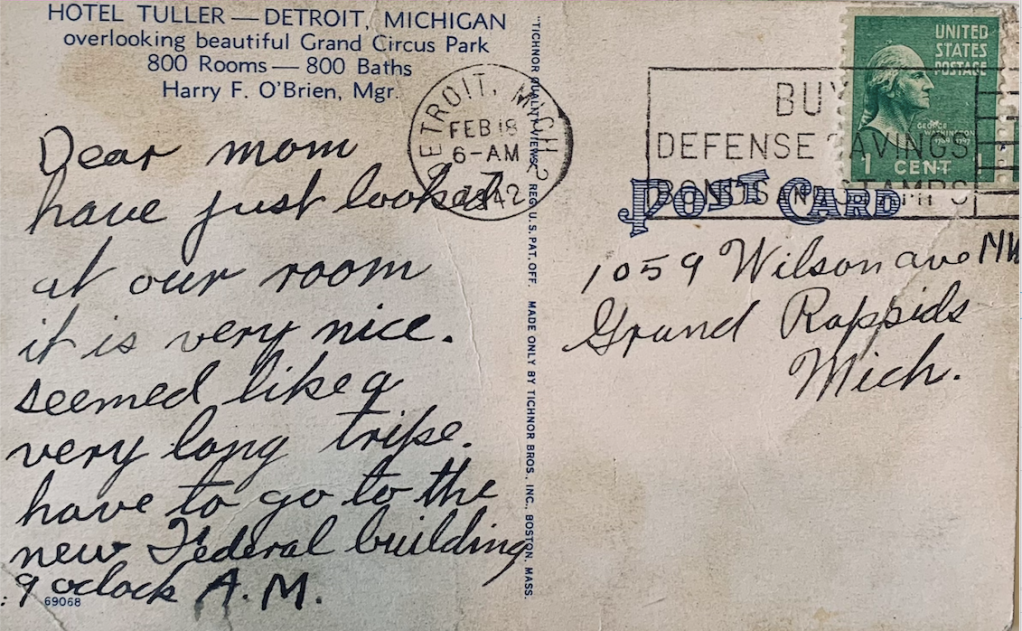 HOTEL TULLER — DETROIT, MICHIGAN
overlooking beautiful Grand Circus Park
800 Rooms — 800 Baths
Harry F. O'Brien, Mgr.
Dear mom
have just looked
at our room
it is very nice.
seemed like a
very long tripe.
have to go to the
new Federal building
9 oclock A.M.
69068
"TICHNOR QUALITY VIEWS," REG. U. S. PAT. OFF. MADE ONLY BY TICHNOR BROS., INC., BOSTON, MASS.
DETROIT, MICH.
FEB 18
6-AM
1942
BUY
DEFENSE SAVINGS
BONDS AND STAMPS
UNITED
STATES
POSTAGE
GEORGE
WASHINGTON
1 CENT
POST CARD
1059 Wilson ave NW
Grand Rappids
Mich.